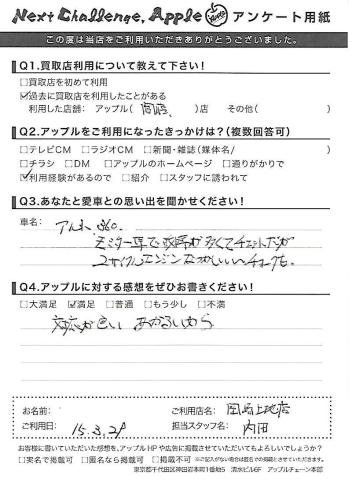 Next Challenge, Apple アンケート用紙
この度は当店をご利用いただきありがとうございました。
Q1.買取店利用について教えて下さい!
□買取店を初めて利用
☑過去に買取店を利用したことがある
利用した店舗: アップル( 岡崎 )店 その他( )
Q2.アップルをご利用になったきっかけは?(複数回答可)
□テレビCM □ラジオCM □新聞・雑誌(媒体名/ )
□チラシ □DM □アップルのホームページ □通りがかりで
☑利用経験があるので □紹介 □スタッフに誘われて
Q3.あなたと愛車との思い出を聞かせください!
車名:
360.
Q4.アップルに対する感想をぜひお書きください!
□大満足 ☑満足 □普通 □もう少し □不満
対応が あかるいから
お名前: ご利用店名: 岡崎上地店
ご利用日: 15.3.29 担当スタッフ名: 内田
お客様に書いていただいた感想を、アップルHPや広告に掲載させていただいてもよろしいでしょうか?
□実名で掲載可 □匿名なら掲載可 □掲載不可 ※ご記入がない場合は匿名での掲載とさせていただきます。
東京都千代田区神田岩本町1番地5 清水ビル6F アップルチェーン本部